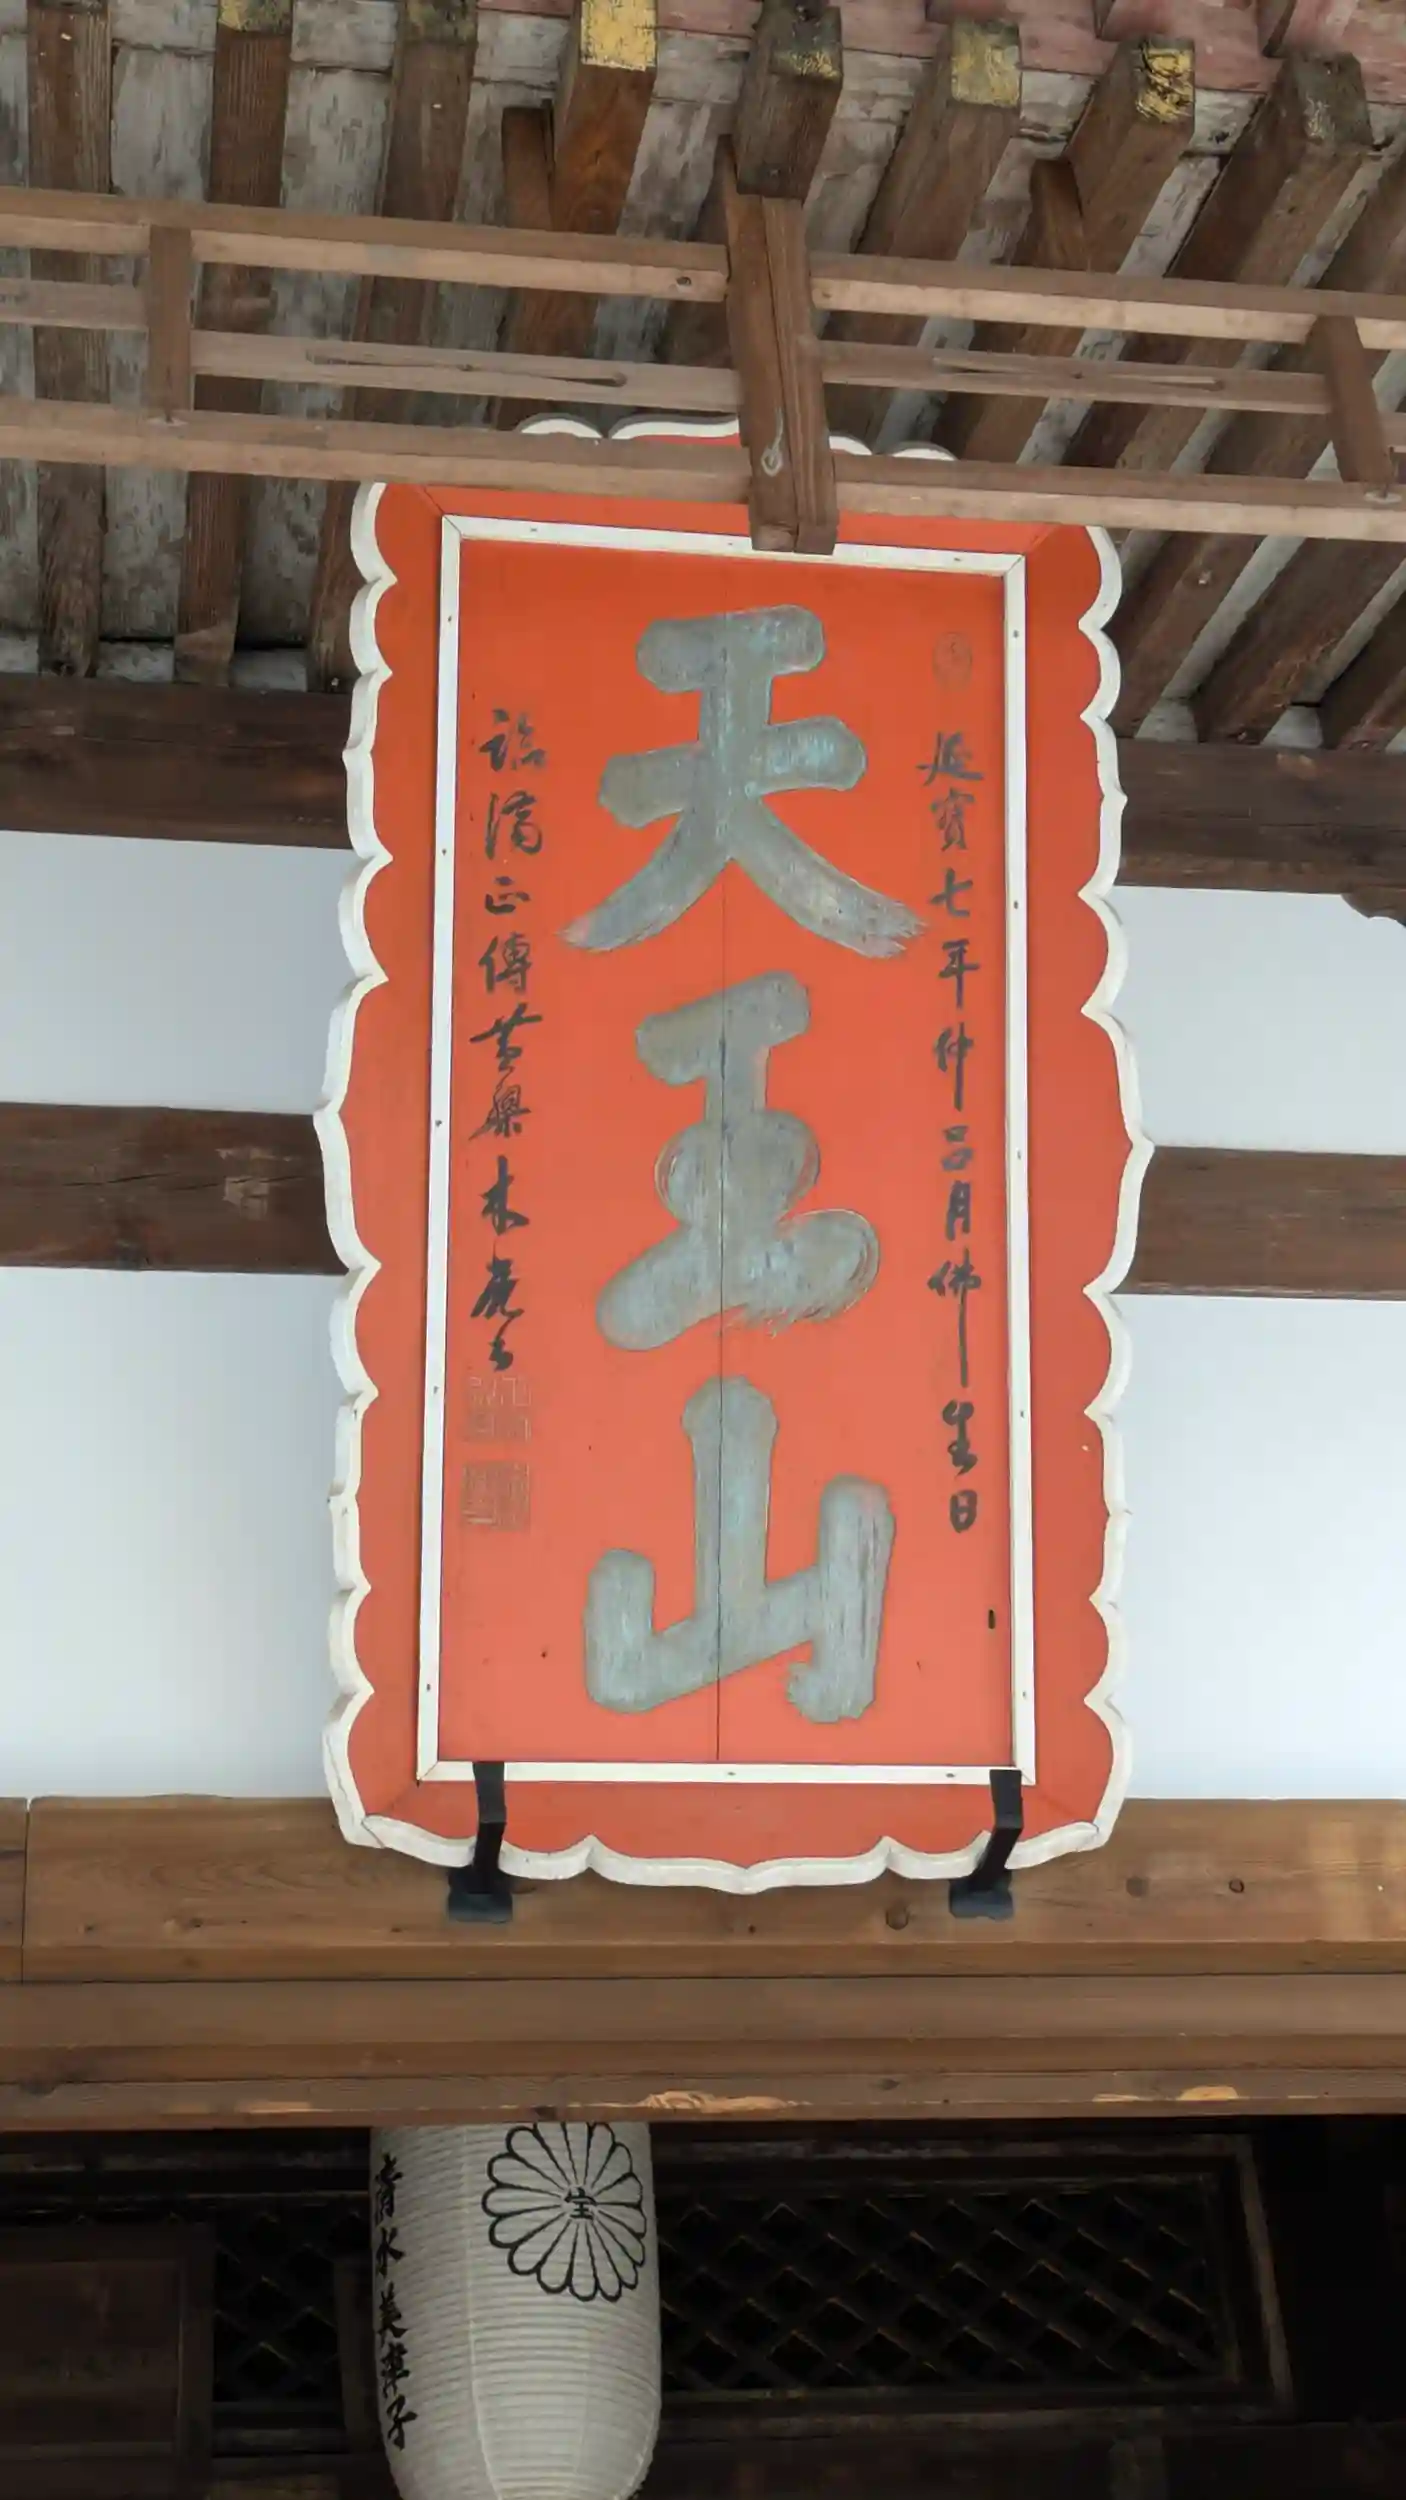 天王山
延寶七年仲呂月佛生日
臨濟正傳黄檗木菴書
宝
清水美津子